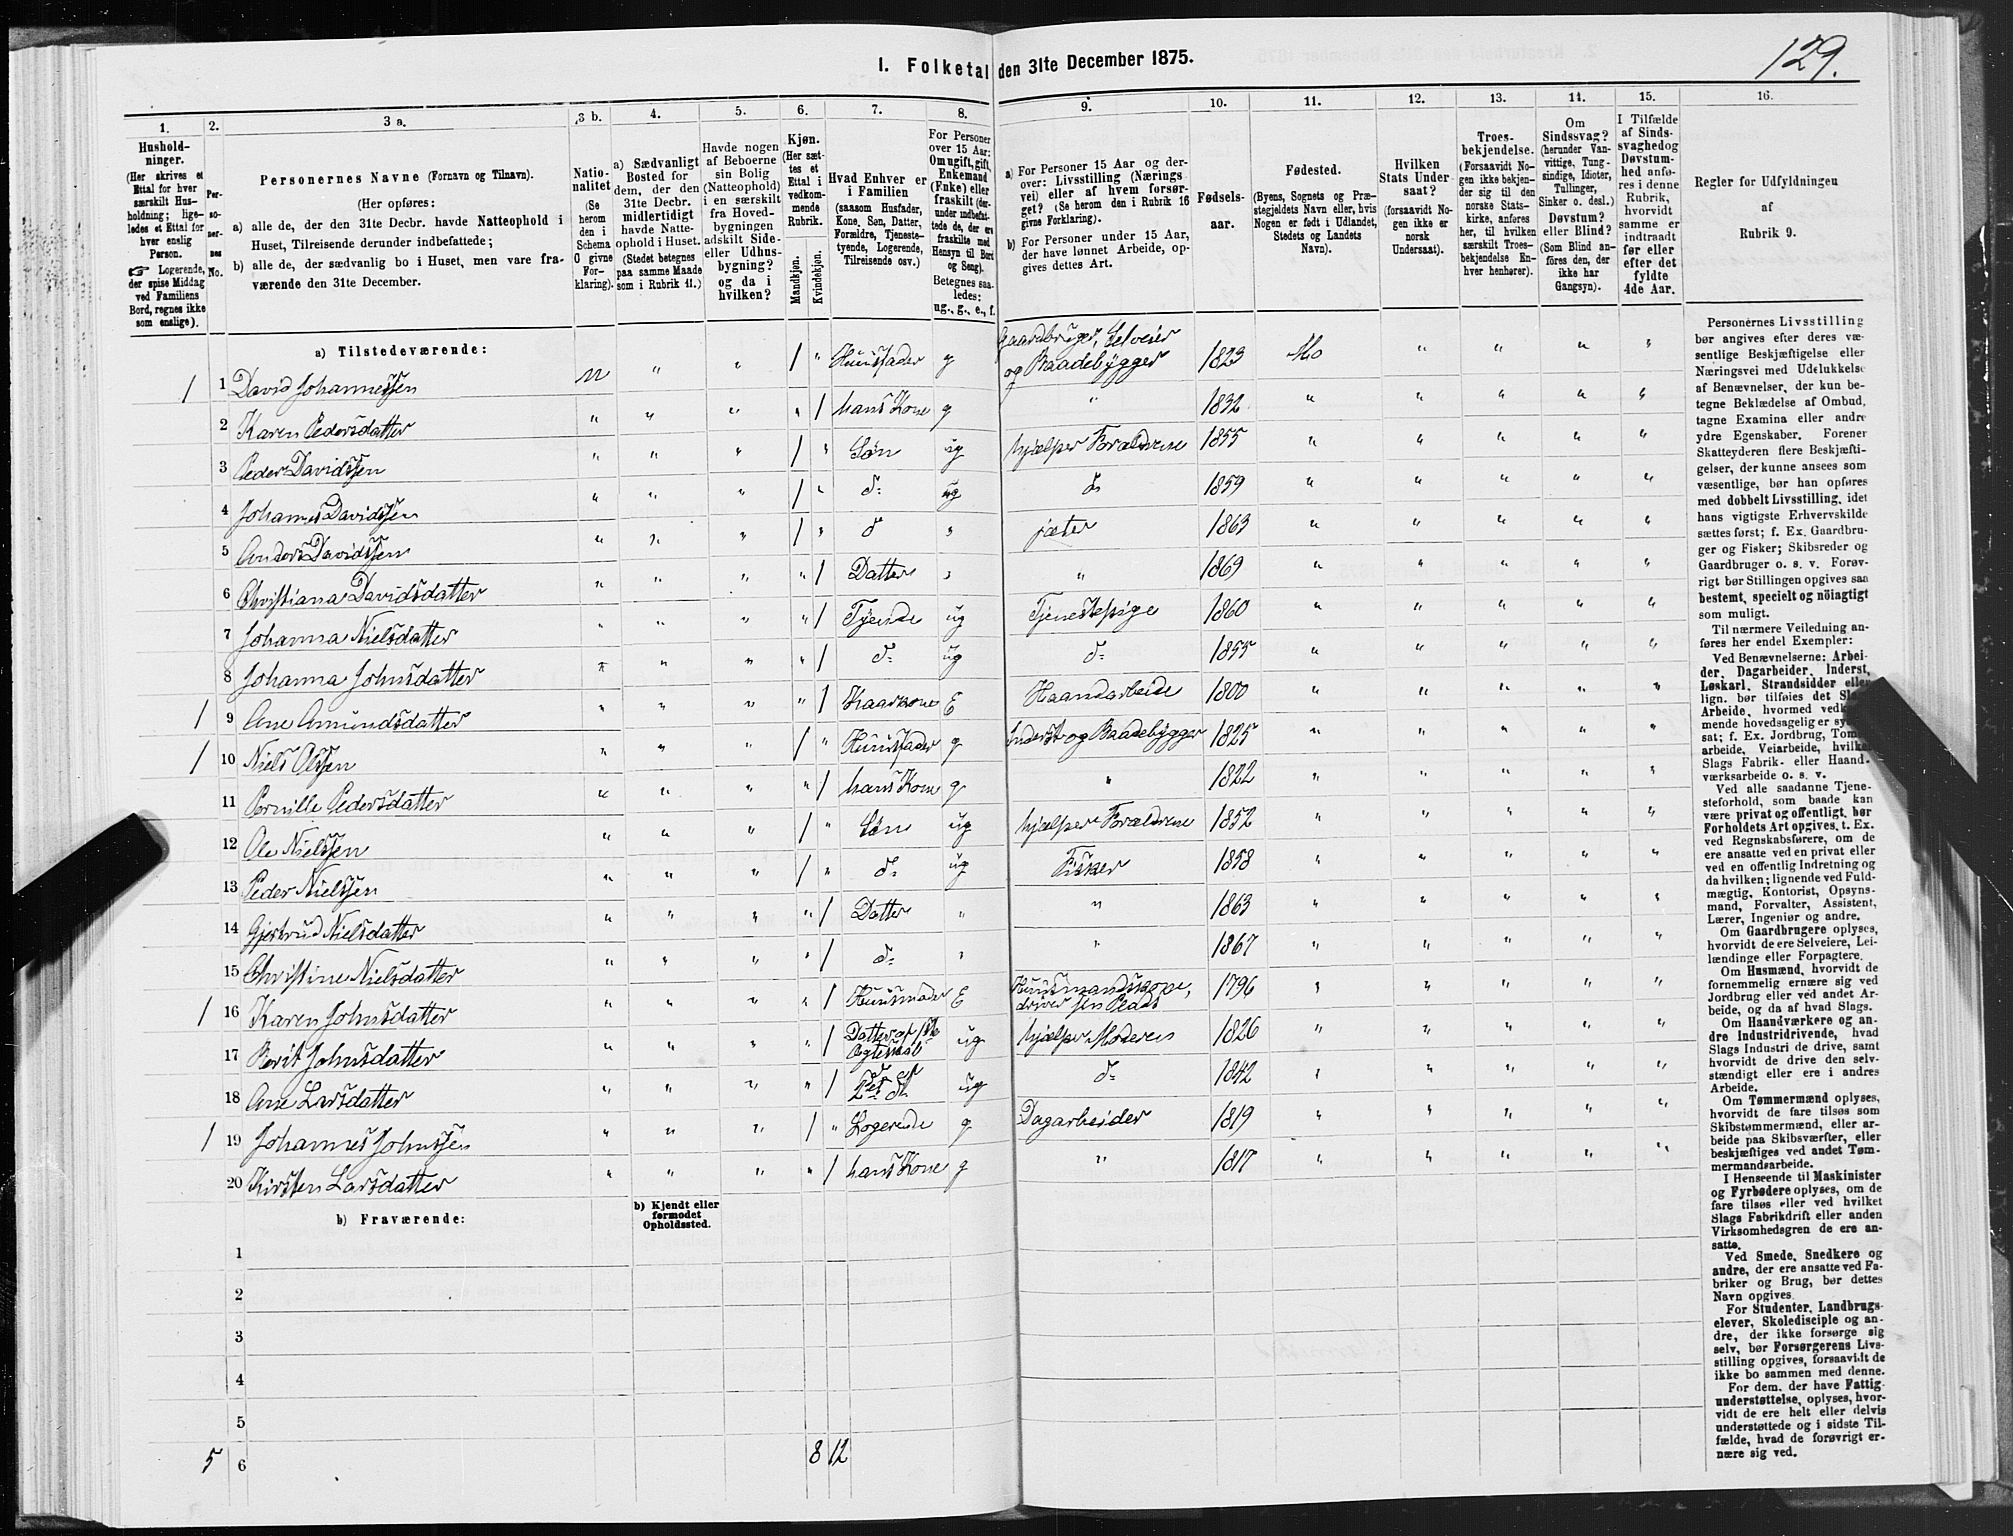 129.
1. Folketal den 31te December 1875.
1.
Hushold-
ninger.
(Her skrives et
Ettal for hver
særskilt Hus-
holdning; lige-
ledes et Ettal for
hver enslig
Person.
☞ Logerende,
der spise Middag
ved Familiens
Bord, regnes ikke
som enslige).
2.
Per-
so-
ner-
nes
No.
3 a.
Personernes Navne (Fornavn og Tilnavn).
(Her opføres:
a) alle de, der den 31te Decbr. havde Natteophold i
Huset, Tilreisende derunder indbefattede;
b) alle de, der sædvanlig bo i Huset, men vare fra-
værende den 31te December.
3 b.
Natio-
nalitet
(Se
herom
den i
Schema
O givne
For-
klaring).
4.
a) Sædvanligt
Bosted for
dem, der den
31te Decbr.
midlertidigt
havde Natte-
ophold i Huset.
(Stedet betegnes
paa samme Maade
som i Rubrik 11.)
5.
Havde nogen
af Beboerne
sin Bolig
(Natteophold)
i en særskilt
fra Hoved-
bygningen
adskilt Side-
eller Udhus-
bygning?
og da i
hvilken?
6.
Kjøn.
(Her sæt-
tes et
Ettal i
vedkom-
mende
Rubrik.
Mandkjøn.
Kvindekjøn.
7.
Hvad Enhver er
i Familien
(saasom Husfader,
Kone, Søn, Datter,
Forældre, Tjeneste-
tyende, Logerende,
Tilreisende osv.)
8.
For Personer
over 15 Aar:
Om ugift, gift,
Enkemand
(Enke) eller
fraskilt (der-
under indbefat-
tede de, der ere
fraskilte med
Hensyn til Bord
og Seng).
Betegnes saa-
ledes:
ug., g., e., f.
9.
a) For Personer 15 Aar og der-
over: Livsstilling (Nærings-
vei) eller af hvem forsør-
get? (Se herom den i Rubrik 16
givne Forklaring).
b) For Personer under 15 Aar,
der have lønnet Arbeide, op-
gives dettes Art.
10.
Fødsels-
aar.
11.
Fødested.
(Byens, Sognets og Præ-
stegjeldets Navn eller, hvis
Nogen er født i Udlandet,
Stedets og Landets
Navn).
12.
Hvilken
Stats Under
saat?
(forsaavidt No-
gen ikke er
norsk
Undersaat).
13.
Troes-
bekjendelse.
(Forsaavidt No-
gen ikke bekjen-
der sig til den
norske Stats-
kirke, anføres
her, til hvilken
særskilt Troes-
bekjendelse En-
hver henhører).
14.
Om
Sindssvag?
(herunder Van-
vittige, Tung-
sindige, Idioter,
Tullinger,
Sinker o. desl.)
Døvstum?
eller Blind?
(Som Blind an-
føres den, der
ikke har
Gangsyn).
15.
I Tilfælde
af Sinds-
svaghed og
Døvstum-
hed anfø-
res i denne
Rubrik,
hvorvidt
samme er
indtraadt
før eller
efter det
fyldte
4de Aar.
16.
Regler for Udfyldningen
af
Rubrik 9.
a) Tilstedeværende:
1 1 David Johannessen n " " 1 " Huusfader g Gaardbruger, Selveier og Baadebygger 1823 Mo " " " "
2 Karen Pedersdatter " " " " 1 hans Kone g " 1832 " " " " "
3 Peder Davidssen " " " 1 " Søn ug hjælper Forældrene 1855 " " " " "
4 Johannes Davidssen " " " 1 " d: ug d: 1859 " " " " "
5 Anders Davidssen " " " 1 " d " jæter 1863 " " " " "
6 Christiana Davidsdatter " " " " 1 Datter " " 1869 " " " " "
7 Johanna Nielsdatter " " " " 1 Tyende ug Tjenestepige 1860 " " " " "
8 Johanna Johnsdatter " " " " 1 d: ug d: 1855 " " " " "
1 9 Ane Amundsdatter " " " " 1 Kaarkone E Haandarbeide 1800 " " " " "
1 10 Niels Olssen " " " 1 " Huusfader g Inderst og Baadebygger 1825 " " " " "
11 Pernille Pedersdatter " " " " 1 hans Kone g " 1822 " " " " "
12 Ole Nielssen " " " 1 " Søn ug hjælper Forældrene 1852 " " " " "
13 Peder Nielssen " " " 1 " d: ug Fisker 1858 " " " " "
14 Gjertrud Nielsdatter " " " " 1 Datter " " 1863 " " " " "
15 Christine Nielsdatter " " " " 1 d: " " 1867 " " " " "
1 16 Karen Johnsdatter " " " " 1 Huusmoder E Huusmandskone, driver sin Plads 1796 " " " " "
17 Berit Johnsdatter " " " " 1 Datter af 1ste Ægteskab ug hjælper Moderen 1826 " " " " "
18 Ane Larsdatter " " " " 1 d af 2det d: ug d: 1842 " " " " "
1 19 Johannes Johnssen " " " 1 " Logerende g Dagarbeider 1819 " " " " "
20 Kirsten Larsdatter " " " " 1 hans Kone g " 1817 " " " " "
b) Fraværende:
b) Kjendt eller
formodet
Opholdssted.
1
2
3
4
5
5 6 8 12
Personernes Livsstilling
bør angives efter deres væ-
sentlige Beskjæftigelse eller
Næringsvei med Udelukkelse
af Benævnelser, der kun be-
tegne Beklædelse af Ombud,
tagne Examina eller andre
ydre Egenskaber. Forener
Skatteyderen flere Beskjæfti-
gelser, der kunne ansees som
væsentlige, bør han opføres
med dobbelt Livsstilling, idet
hans vigtigste Erhvervskilde
sættes først; f. Ex. Gaardbru-
ger og Fisker; Skibsreder og
Gaardbruger o. s. v. Forøv-
rigt bør Stillingen opgives saa
bestemt, specielt og nöiagtigt
som muligt.
Til nærmere Veiledning an-
føres her endel Exempler:
Ved Benævnelserne: Arbei-
der, Dagarbeider, Inderst,
Løskarl, Strandsidder eller
lign. bør tilføies det Slags
Arbeide, hvormed
mende hovedsagelig er
sat; f. Ex. Jordbrug,
arbeide, Veiarbeide, hvilket
Slags Fabrik- eller Haand-
værksarbeide o. s. v.
Ved alle saadanne Tjene-
steforhold, som baade kan
være privat og offentligt, bør
Forholdets Art opgives, t. Ex.
ved Regnskabsførere, om de
ere ansatte ved en privat eller
ved en offentlig Indretning og
da hvilken; lignende ved Fuld-
mægtig, Kontorist, Opsyns-
mand, Forvalter, Assistent,
Lærer, Ingeniør og andre.
Om Gaardbrugere oplyses,
hvorvidt de ere Selveiere, Lei-
lændinge eller Forpagtere.
Om Husmænd, hvorvidt de
fornemmelig ernære sig ved
Jordbrug eller ved andet Ar-
beide, og da af hvad Slags.
Om Haandværkere og an-
dre Industridrivende, hvad
Slags Industri de drive, samt
hvorvidt de drive den selv-
stændigt eller ere i andres
Arbeide.
Om Tømmermænd oplyses,
hvorvidt de fare tilsøs som
Skibstømmermænd, eller ar-
beide paa Skibsværfter, eller
beskjæftiges ved andet Tøm-
mermandsarbeide.
I Henseende til Maskinister
og Fyrbødere oplyses, om de
fare tilsøs eller ved hvilket
Slags Fabrikdrift eller anden
Virksomhedsgren de ere an-
satte.
Ved Smede, Snedkere og
andre, der ere ansatte ved Fa-
briker og Brug, bør dettes
Navn opgives.
For Studenter, Landbrugs-
elever, Skoledisciple og an-
dre, der ikke forsørge sig
selv, bør Forsørgerens Livs-
stilling opgives, forsaavidt de
ikke bo sammen med denne.
For dem, der have Fattig-
understøttelse, oplyses, hvor-
vidt de ere helt eller delvis
understøttede og i sidste Til-
fælde, hvad de forøvrigt er-
nære sig ved.